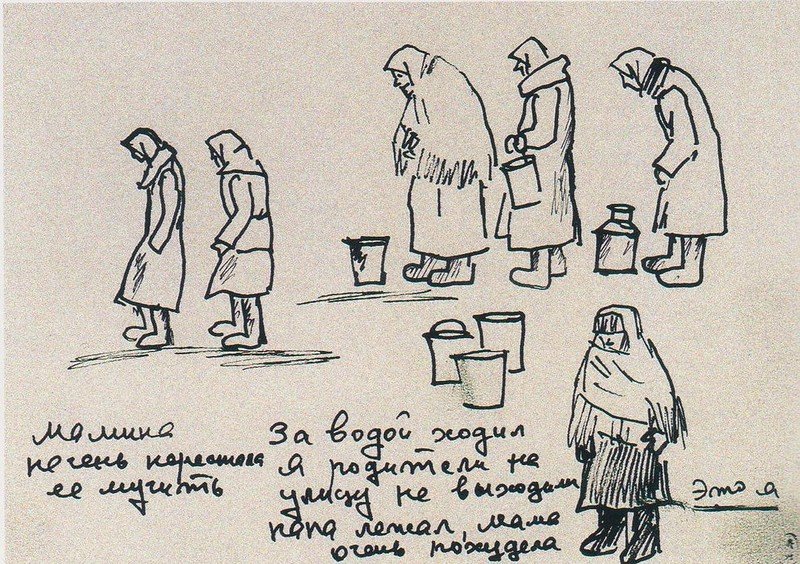 мамина
печень перестала
ее мучить
За водой ходил
я родители на
улицу не выходили
папа лежал мама
очень похудела
Это я